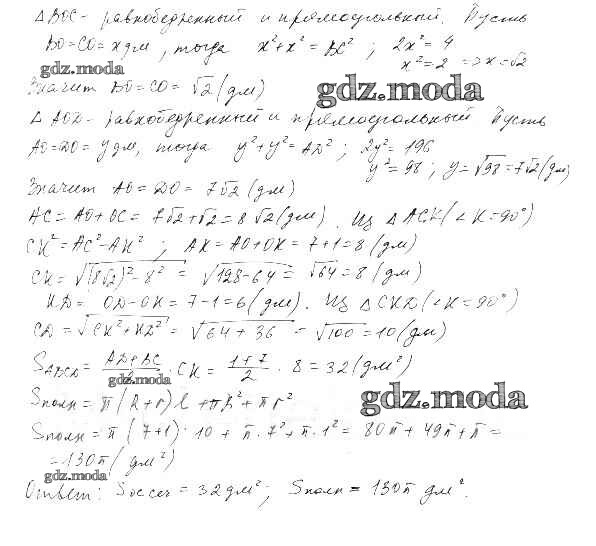 ΔBOC - равнобедренный и прямоугольный. Пусть
BO=CO=x дм, тогда x²+x²=BC²; 2x²=4
x²=2 => x=√2
gdz.moda
Значит BO=CO=√2 (дм)
gdz.moda
ΔAOD - равнобедренный и прямоугольный Пусть
AO=DO=y дм, тогда y²+y²=AD²; 2y²=196
y²=98; y=√98=7√2 (дм)
Значит AO=DO=7√2 (дм)
AC=AO+OC=7√2+√2=8√2 (дм). Из ΔACK (∠K=90°)
CK²=AC²-AK²; AK=AO+OK=7+1=8 (дм)
CK=√(8√2)²-8²=√128-64=√64=8 (дм)
KD=OD-OK=7-1=6 (дм). Из ΔCKD (∠K=90°)
CD=√CK²+KD²=√64+36=√100=10 (дм)
S ABCD = AD+BC/2 · CK = 1+7/2 · 8=32 (дм²)
gdz.moda
Sполн = π(R+r)l+πR²+πr²
gdz.moda
Sполн = π(7+1)·10+π·7²+π·1²=80π+49π+π=
=130π (дм²)
gdz.moda
Ответ: Sос сеч=32дм²; Sполн=130π дм².